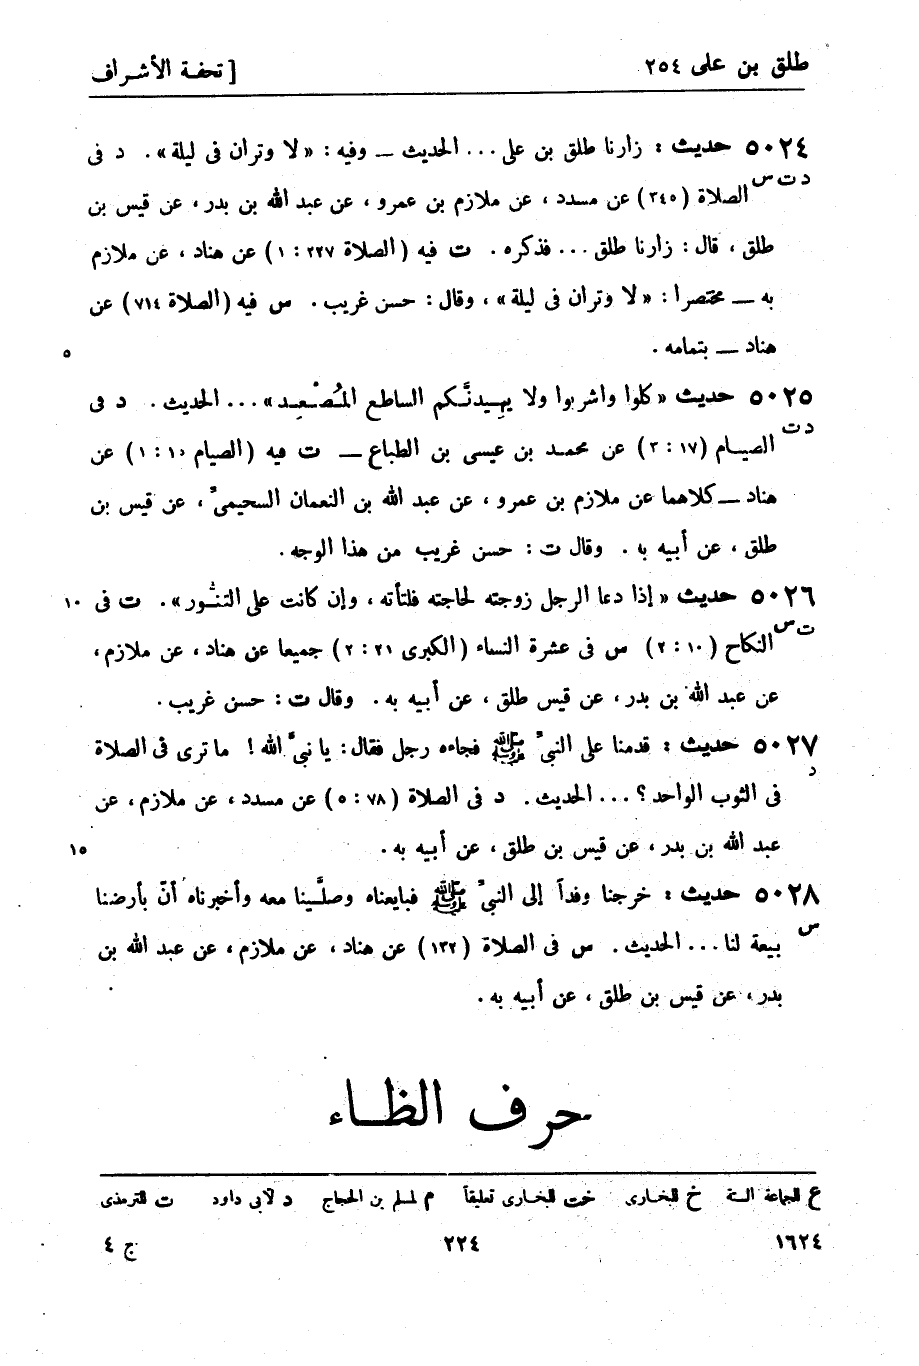 طلق بن على ٢٥٤ [ تحفة الأشراف
٥٠٢٤ حديث : زارنا طلق بن على ... الحديث — وفيه : «لا وتران فى ليلة». د فى
د ت س
الصلاة (٣٤٥) عن مسدد ، عن ملازم بن عمرو ، عن عبد الله بن بدر، عن قيس بن
طلق ، قال : زارنا طلق ... فذكره . ت فيه (الصلاة ٢٢٧ : ١) عن هناد ، عن ملازم
به — مختصرا : «لا وتران فى ليلة» ، وقال : حسن غريب . س فيه (الصلاة ٧١٤) عن
هناد — بتمامه . ٥
٥٠٢٥ حديث «كلوا واشربوا ولا يهيدنَّكم الساطع المُصْعِد» ... الحديث . د فى
د ت
الصيام (١٧ : ٣) عن محمد بن عيسى بن الطباع — ت فيه (الصيام ١٥ : ١) عن
هناد — كلاهما عن ملازم بن عمرو ، عن عبد الله بن النعمان السحيمىّ ، عن قيس بن
طلق ، عن أبيه به . وقال ت : حسن غريب من هذا الوجه .
٥٠٢٦ حديث «إذا دعا الرجل زوجته لحاجته فلتأته ، وإن كانت على التنُّور». ت فى ١٠
ت س
النكاح (١٠ : ٢) س فى عشرة النساء (الكبرى ٢١ : ٢) جميعا عن هناد، عن ملازم،
عن عبد الله بن بدر، عن قيس طلق ، عن أبيه به . وقال ت : حسن غريب .
٥٠٢٧ حديث : قدمنا على النبىّ ﷺ فجاءه رجل فقال : يا نبىّ الله ! ما ترى فى الصلاة
د
فى الثوب الواحد ؟ ... الحديث . د فى الصلاة (٧٨ : ٥) عن مسدد، عن ملازم، عن
عبد الله بن بدر، عن قيس بن طلق ، عن أبيه به . ١٥
٥٠٢٨ حديث : خرجنا وفداً إلى النبىّ ﷺ فبايعناه وصلَّينا معه وأخبرناه أنّ بأرضنا
س
بيعة لنا ... الحديث . س فى الصلاة (١٣٢) عن هناد ، عن ملازم ، عن عبد الله بن
بدر، عن قيس بن طلق ، عن أبيه به .
حرف الظاء
ع للجماعة الستة خ للبخارى خت للبخارى تعليقاً م لمسلم بن الحجاج د لأبى داود ت للترمذى
١٦٢٤ ٢٢٤ ج ٤